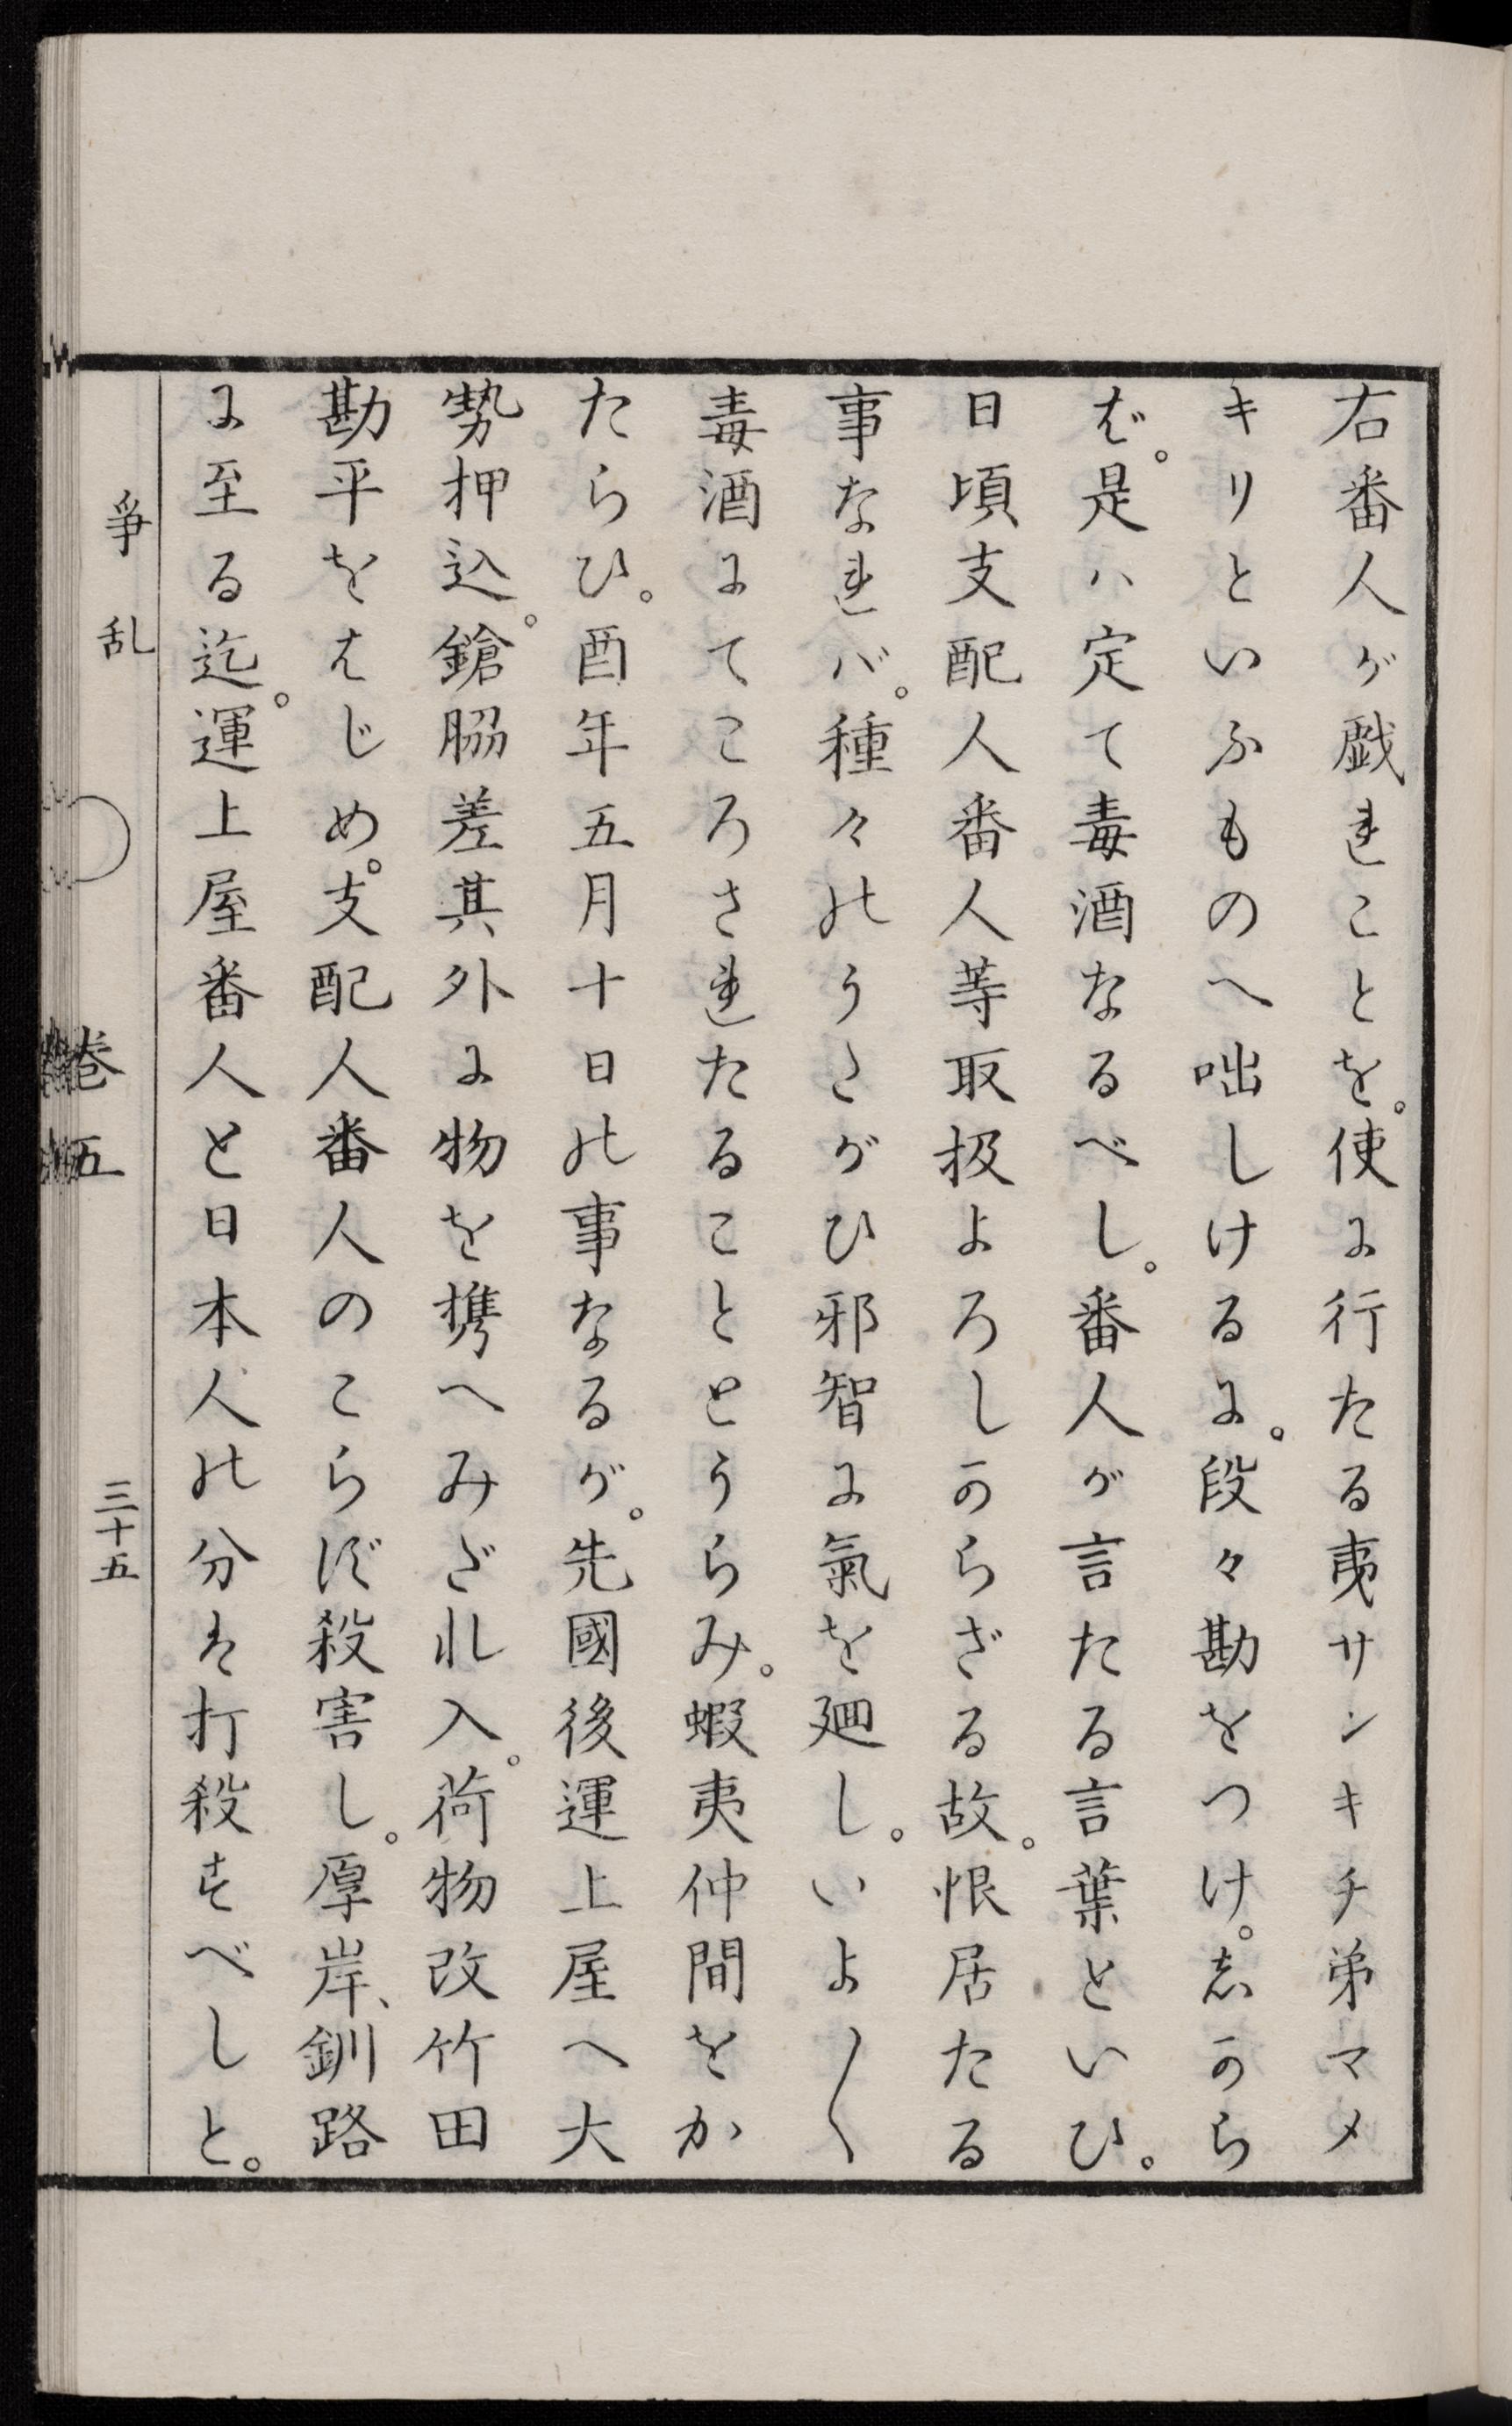 右番人が戯れことを。使に行たる夷サンキチ弟マメ
キリといふものへ咄しけるに。段々勘をつけ。志から
ば。是ハ定て毒酒なるべし。番人が言たる言葉といひ。
日頃支配人番人等取扱よろしからざる故。恨居たる
事なれバ。種々のうたがひ邪智に氣を廻し。いよ〳〵
毒酒にてころされたることとうらみ。蝦夷仲間をか
たらひ。酉年五月十日の事なるが。先國後運上屋へ大
勢押込。鎗脇差其外に物を携へみだれ入。荷物改竹田
勘平をはじめ。支配人番人のこらず殺害し。厚岸、釧路
に至る迄。運上屋番人と日本人の分は打殺すべしと。
爭乱 巻五 三十五